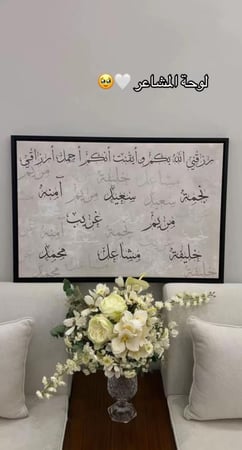 لوحة المشاعر 🤍 🥹
رزقني الله بكم وأيقنت أنكم أجمل أرزاقي
نجمة سعيد آمنه
مريم غريب
خليفة مشاعل محمد